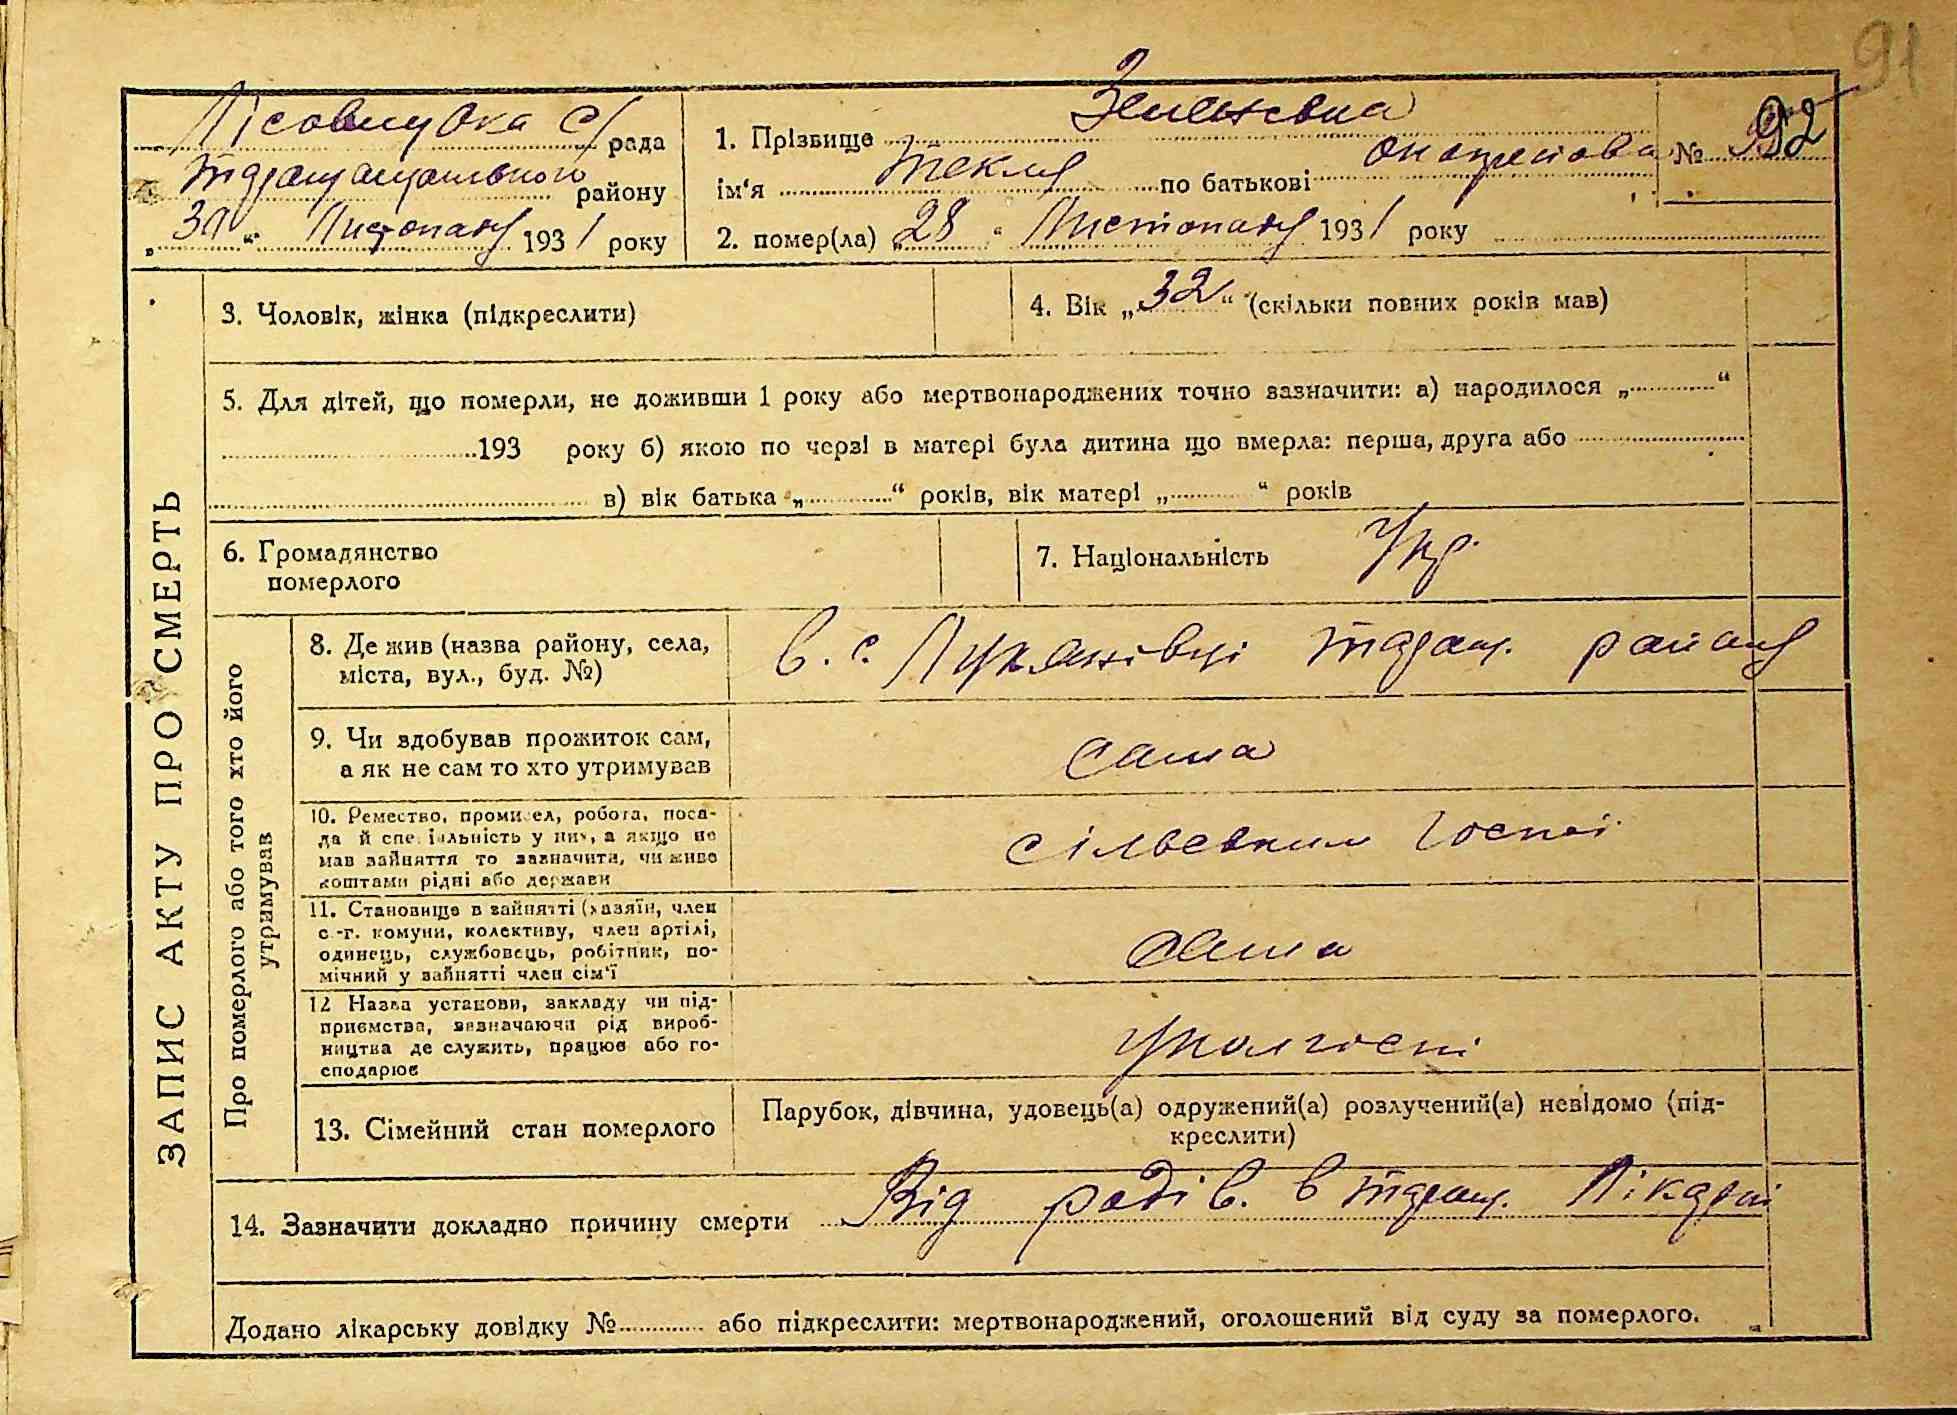 91
рада
району
„30“ Листопаду 1931 року
1. Прізвище
ім‘я Текля по батькові
№ 92
2. помер(ла) „28“ Листопаду 1931 року
ЗАПИС АКТУ ПРО СМЕРТЬ
3. Чоловік, жінка (підкреслити)
4. Вік „32“ (скільки повних років мав)
5. Для дітей, що померли, не доживши 1 року або мертвонароджених точно зазначити: а) народилося „............“
193 року б) якою по черзі в матері була дитина що вмерла: перша, друга або
в) вік батька „............“ років, вік матері „............“ років
6. Громадянство
померлого
7. Національність Укр.
Про померлого або того хто його
утримував
8. Де жив (назва району, села,
міста, вул., буд. №)
в. с. Лукашівці районy
9. Чи здобував прожиток сам,
а як не сам то хто утримував
сама
10. Ремество, промисел, робота, поса-
да й спеціяльність у них, а якщо не
мав зайняття то зазначити, чи живе
коштами рідні або держави
11. Становище в зайнятті (хазяїн, член
с.-г. комуни, колективу, член артілі,
одинець, службовець, робітник, по-
мічний у зайнятті член сім‘ї
сама
12 Назва установи, закладу чи під-
приємства, зазначаючи рід вироб-
ництва де служить, працює або го-
сподарює
у колгоспі
13. Сімейний стан померлого
Парубок, дівчина, удовець(а) одружений(а) розлучений(а) невідомо (під-
креслити)
14. Зазначити докладно причину смерти Від родів. в Лікарні
Додано лікарську довідку №............ або підкреслити: мертвонароджений, оголошений від суду за померлого.